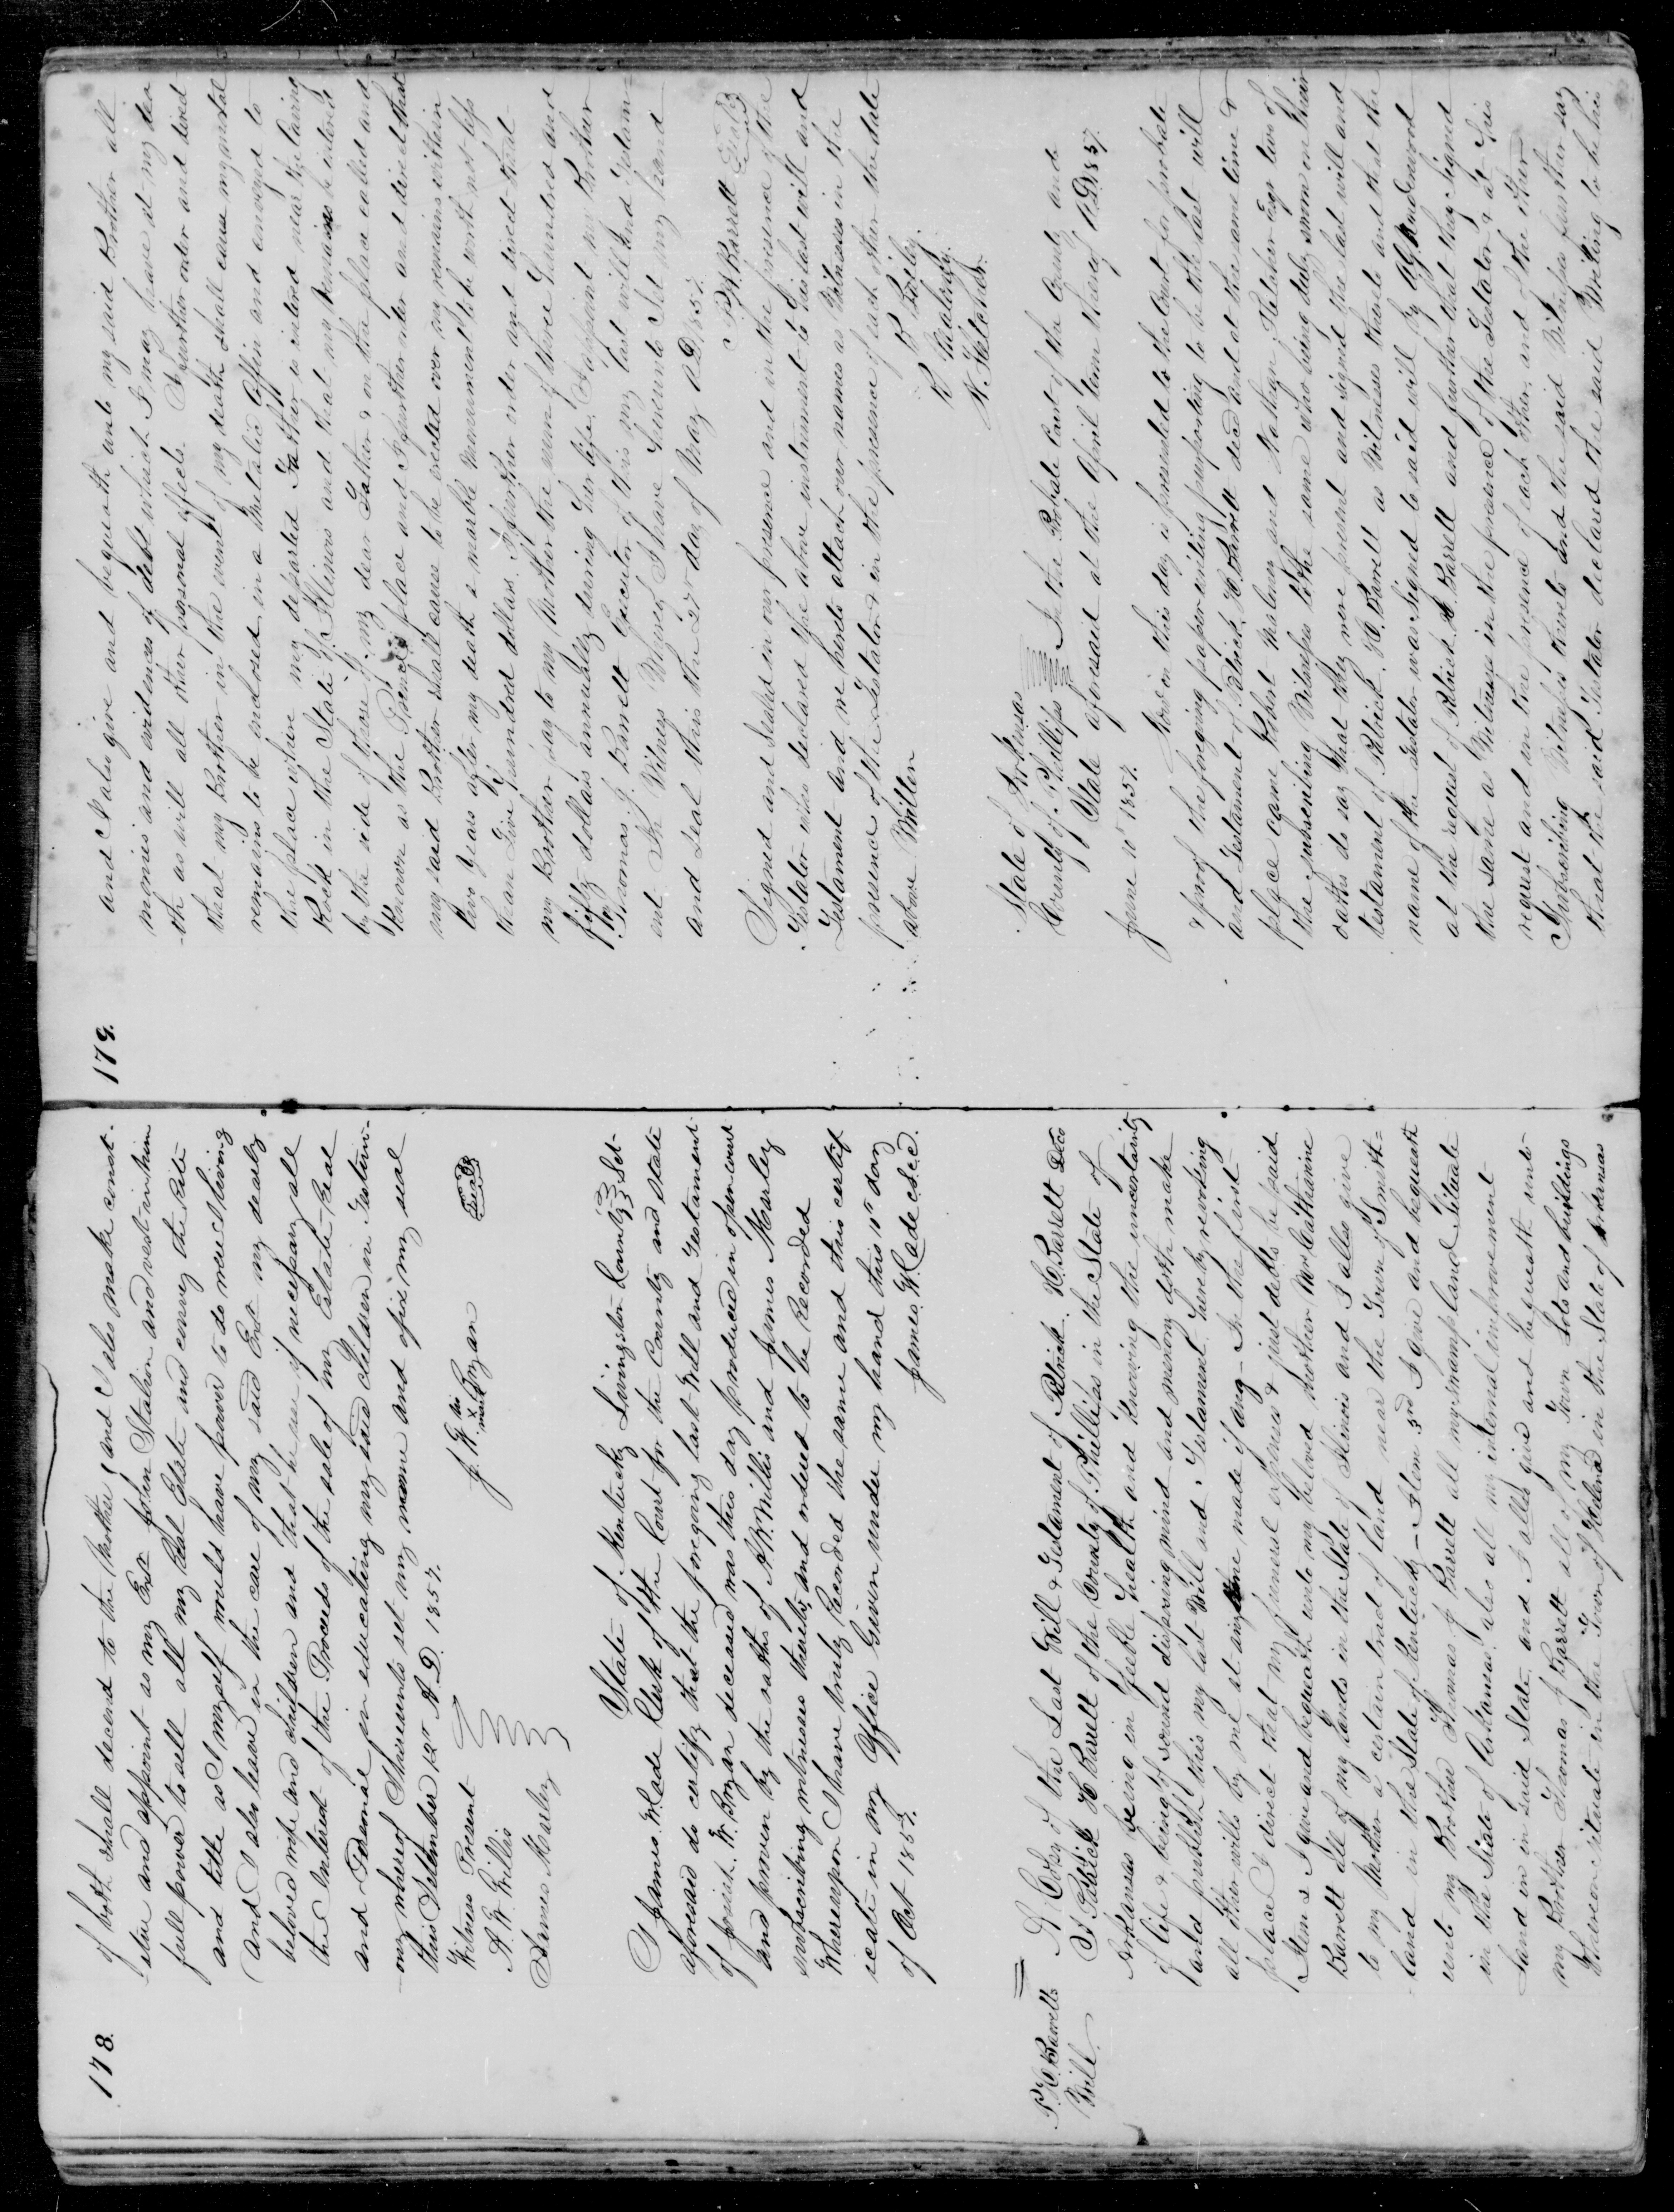 178.
of both shall decend to the Mother, and I also make const-
-etue and appoint as my Exr John Stallion and vest in him
full power to sell all my Real Estate and convey the rite
and title as I myself would have power to do were I living
And I also leave in the care of my said Exr my dearly
beloved wife and children and that he use if necessary all
the Interest of the Proceeds of the sale of my Estate Real
and Personal in educating my said Children in Testim-
-ony whereof I hereunto set my name and afix my seal
this September 12th A. D. 1857.
Witness Present
A. W. Willis
James Marley
J. W. his X mark Bozan
Seal
State of Kentucky Livingston County Sct.
I James W. Cade Clerk of the Court for the County and State
aforesaid do certify that the foregoing last Will and Testament
of Josiah W. Bozan deceased was this day produced in open court
and proven by the oaths of A. W. Willis and James Marley
subscribing witnesses thereto, and ordered to be Recorded
Whereupon I have truly Recorded the same and this certif-
icate in my Office Given under my hand this 10th day
of Oct 1857.
James W. Cade c.l.c.c.
P. H. Barretts
Will
A Copy of the Last Will & Testament of Patrick H. Barrett Decd
I Patrick H Barrett of the County of Phillips in the State of
Arkansas being in feeble health and knowing the uncertainty
of life & being of sound disposing mind and memory doth make
and publish this my last Will and Testament hereby revoking
all other wills by me at any time made if any— In the first
place I direct that my funeral expenses & just debts be paid
Item 2 I give and bequeath unto my beloved Mother Mrs Catharine
Barrett all of my lands in the State of Illinois and I allso give
to my Mother a certain tract of land near the Town of Smith-
-land in the State of Kentucky— Item 3rd I give and bequeath
unto my Brother Thomas J Barrett all my swamp land situate
in the State of Arkansas, also all my internal improvement
land in said State, and I allso give and bequeath unto
my Brother Thomas J Barrett all of my Town Lots and buildings
thereon situate in the Town of Helena in the State of Arkansas
179.
and I also give and bequeath unto my said Brother all
monies and evidences of debt which I may leave at my dea
-th as will all other personal effects. I further order and direct
that my Brother in the event of my death shall cause my mortal
remains to be enclosed in a Metalic Coffin and conveyed to
the place where my departed Father is intered near the Caving
Rock in the State of Illinois and that my Remains be intered
by the side of those of my dear Father & on the place called and
Known as the place and I further order and direct that
my said Brother shall cause to be erected over my remains within
two years after my death a marble monument to be worth not less
than Five Hundred dollars. I further order and direct that
my Brother pay to my Mother the sum of three hundred and
fifty dollars annually during her life. I appoint my Brother
Thomas J. Barrett Executor of this my last will and Testam-
ent In Witness Whereof I have hereunto Set my hand
and Seal this the 27th day of May A.D. 1857.
P. H. Barrett Seal
Signed and Sealed in our presence and in the presence of the
Testator who declared the above instrument to his last will and
Testament and we hereto attach our names as Witnesses in the
presence of the Testator & in the presence of each other the date
above Written
R. Maloney.
N. Fletcher.
State of Arkansas
County of Phillips In the Probate Court of the County and
State aforesaid at the April term thereof A.D. 1857.
June 10th 1857. Now on this day is presented to the Court for probate
& proof the foregoing paper writing purporting to be the last will
and Testament of Patrick H. Barrett decd and at the same time &
place came Robert Maloney and Nathan Fletcher Esqr two of
the subscribing Witnesses to the same who being duly sworn on their
oaths do say that they were present and signed the last will and
testament of Patrick H. Barrett as Witnesses thereto and that the
name of the testator was signed to said will by
at the request of Patrick H. Barrett and further that they signed
the same as Witnesses in the presence of the Testator & at his
request and in the presence of each other, and of the other
Subscribing Witness thereto and the said Witnesses further say
that the said Testator declared the said Writing to be his